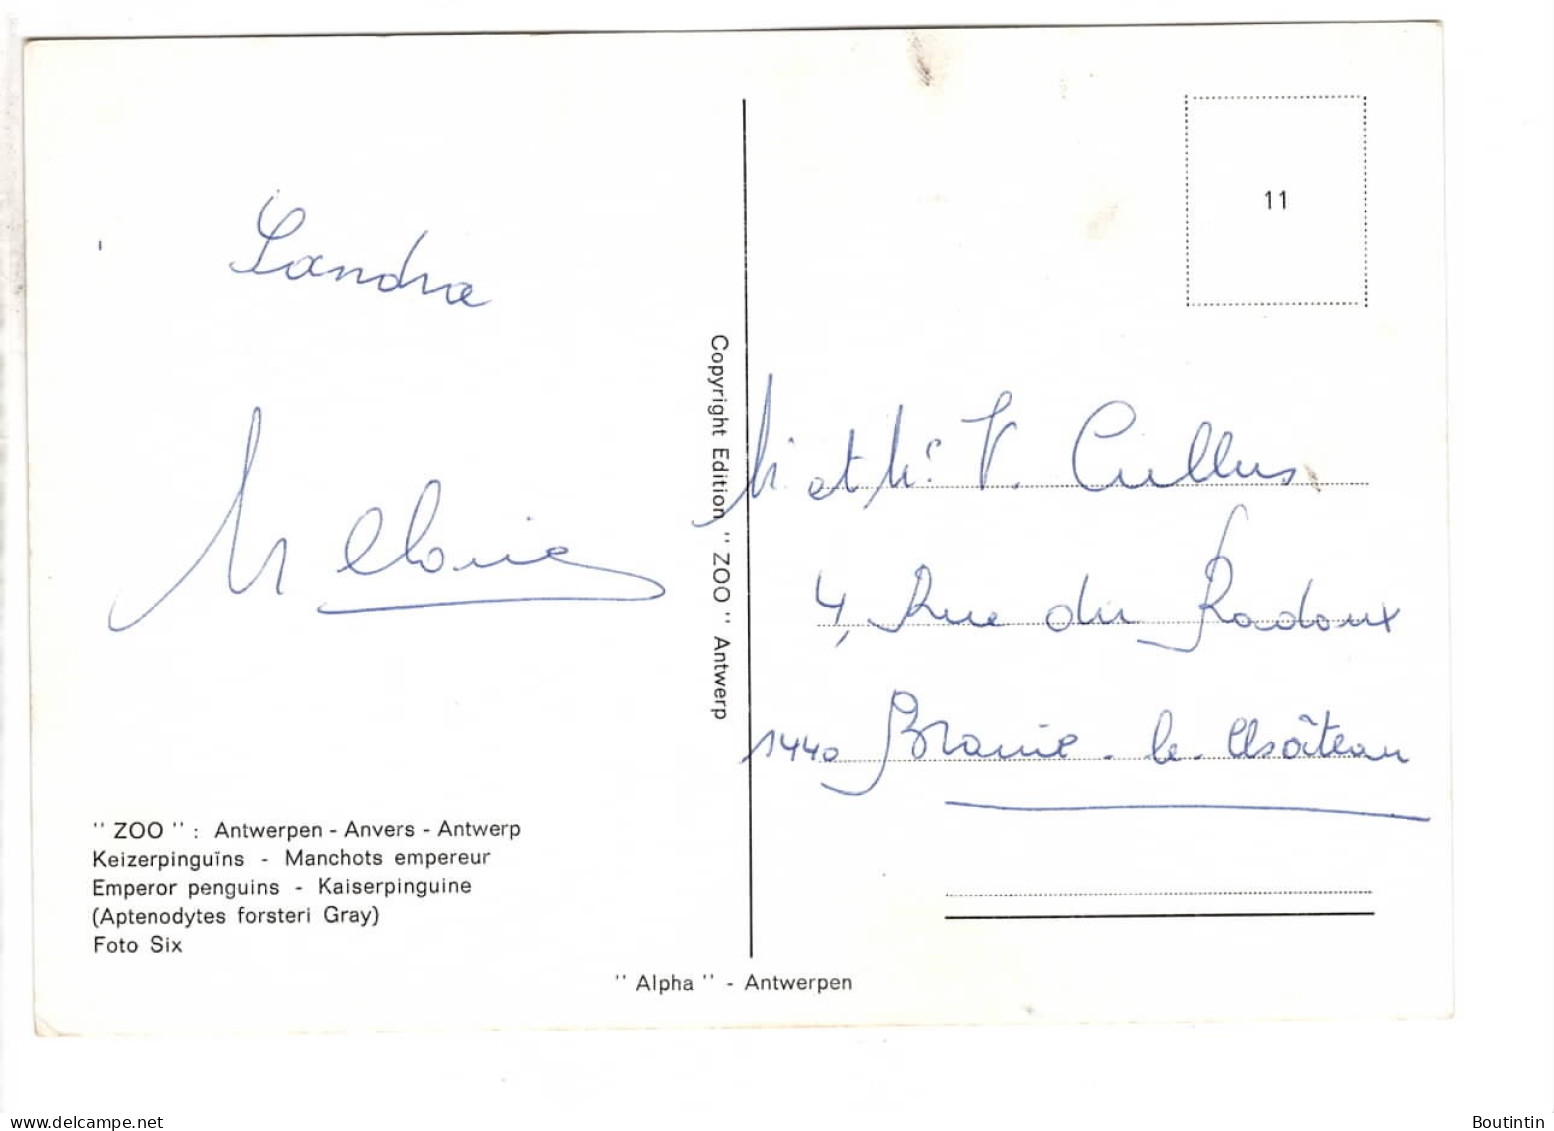 Sandra
M Claire
" ZOO " : Antwerpen - Anvers - Antwerp
Keizerpinguïns - Manchots empereur
Emperor penguins - Kaiserpinguine
(Aptenodytes forsteri Gray)
Foto Six
Copyright Edition " ZOO " Antwerp
" Alpha " - Antwerpen
11
M. et Me. V. Cullus
4, Rue du Radoux
1440 Braine-le-Château
delcampe.net
Boutintin